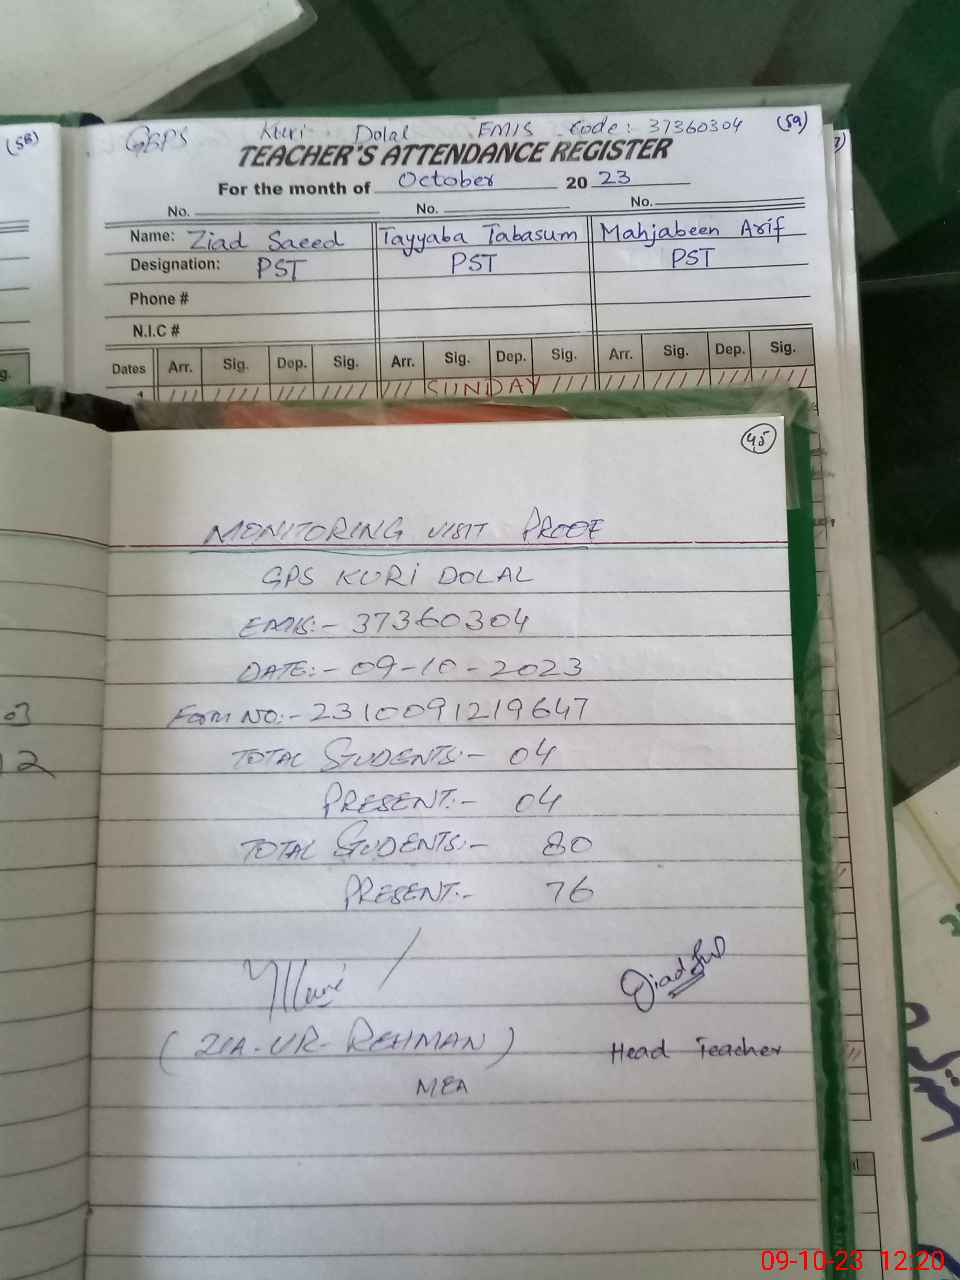 (58)
GGPS Kuri Dolal EMIS Code: 37360304 (59)
TEACHER'S ATTENDANCE REGISTER
For the month of October 20 23
No. No. No.
Name: Ziad Saeed Tayyaba Tabasum Mahjabeen Arif
Designation: PST PST PST
Phone #
N.I.C #
Dates Arr. Sig. Dep. Sig. Arr. Sig. Dep. Sig. Arr. Sig. Dep. Sig.
1 SUNDAY
45
MONITORING VISIT PROOF
GPS KURI DOLAL
EMIS:- 37360304
DATE:- 09-10-2023
Form NO:- 2310091219647
TOTAL STUDENTS:- 04
PRESENT:- 04
TOTAL STUDENTS:- 80
PRESENT:- 76
(ZIA-UR-REHMAN) Head Teacher
MEA
09-10-23 12:20